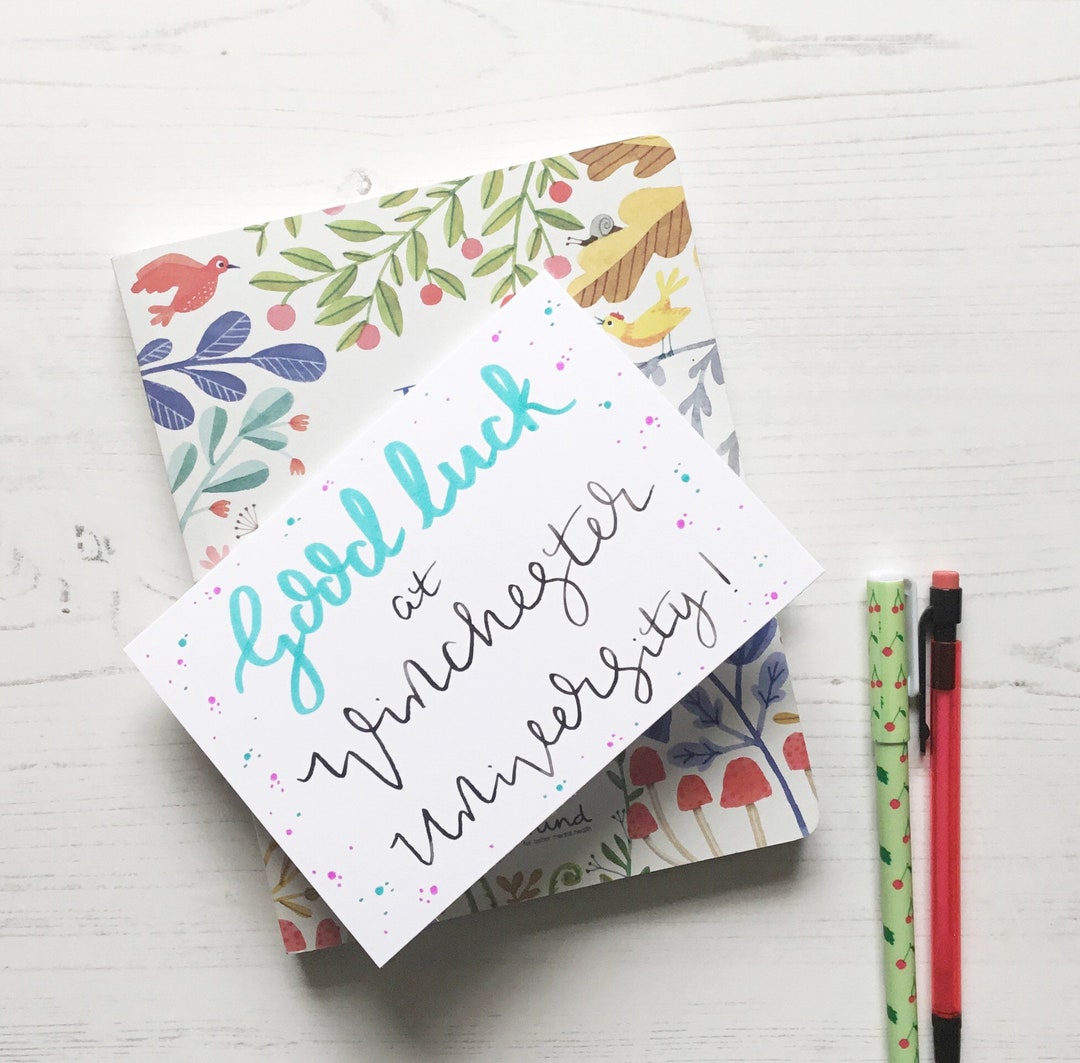 Good luck
at
Winchester
University!
for better mental health